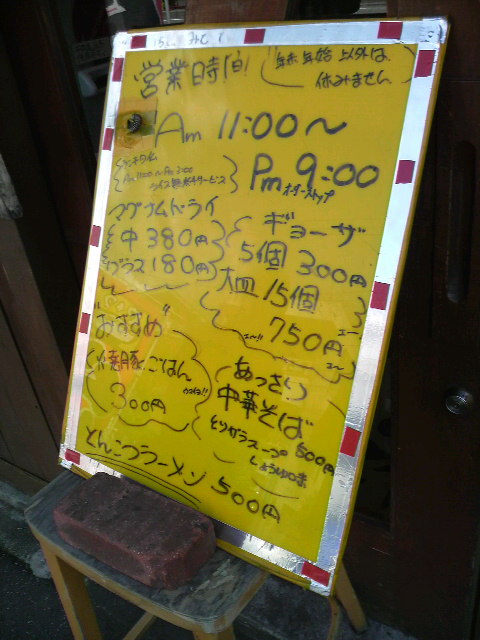 営業時間
年末年始以外は、
休みません
Am 11:00〜
Pm 9:00
オーダーストップ
ランチタイム
Am 11:00〜Pm 3:00
ライス無料サービス
マグナムドライ
中 380円
グラス 180円
ギョーザ
5個 300円
大皿 15個
750円
"おすすめ"
焼豚ごはん
300円
あっさり
中華そば
500円
とりガラスープ
しょうゆ味
とんこつラーメン 500円